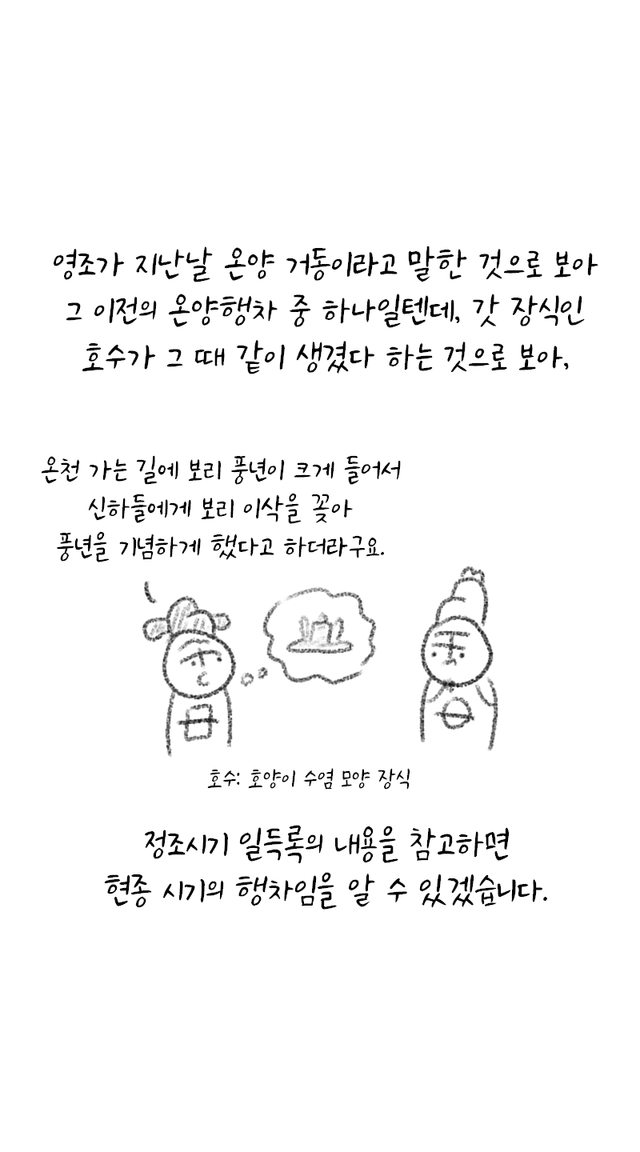 영조가 지난날 온양 거동이라고 말한 것으로 보아
그 이전의 온양행차 중 하나일텐데, 갓 장식인
호수가 그 때 같이 생겼다 하는 것으로 보아,
온천 가는 길에 보리 풍년이 크게 들어서
신하들에게 보리 이삭을 꽂아
풍년을 기념하게 했다고 하더라구요.
호수: 호양이 수염 모양 장식
정조시기 일득록의 내용을 참고하면
현종 시기의 행차임을 알 수 있겠습니다.